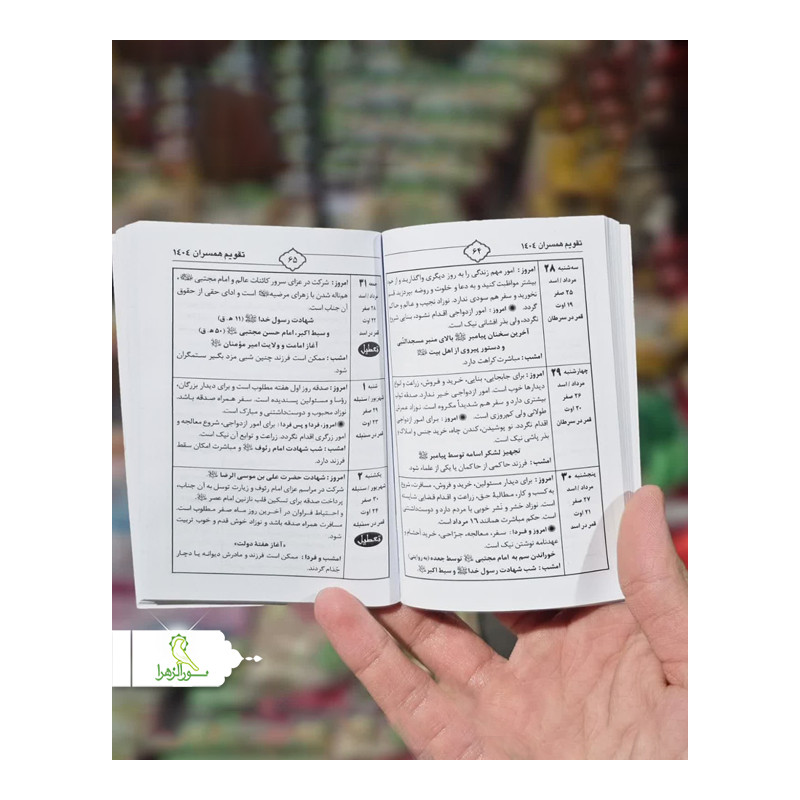 تقویم همسران ۱۴۰۴
۶۴
سه‌شنبه ۲۸
مرداد / اسد
۲۵ صفر
۱۹ اوت
قمر در سرطان
امروز: امور مهم زندگی را به روز دیگری واگذارید و از خود
بیشتر مواظبت کنید و به دعا و خلوت و روضه بپردازید. قسم
نخورید و سفر هم سودی ندارد. نوزاد نجیب و عالم و حاکم
گردد. امروز: امور ازدواجی اقدام نشود، بنایی شروع
نگردد، ولی بذر افشانی نیک است.
آخرین سخنان پیامبر بالای منبر مسجدالنبی
و دستور پیروی از اهل بیت
امشب: مباشرت کراهت دارد.
چهارشنبه ۲۹
مرداد / اسد
۲۶ صفر
۲۰ اوت
قمر در سرطان
امروز: برای جابجایی، بنایی، خرید و فروش، زراعت و انواع
دیدارها خوب است. امور ازدواجی خیر ندارد. صدقه ثواب
بیشتری دارد و سفر هم شدیداً مکروه است. نوزاد عمرش
طولانی ولی کم‌روزی است. امروز: برای امور ازدواجی
اقدام نگردد. نو پوشیدن، کندن چاه، خرید جنس و املاک و
بذر پاشی نیک است.
تجهیز لشکر اسامه توسط پیامبر
امشب: فرزند حاکمی از حاکمان یا یکی از علماء شود.
پنجشنبه ۳۰
مرداد / اسد
۲۷ صفر
۲۱ اوت
قمر در اسد
امروز: برای دیدار مسئولین، خرید و فروش، مسافرت، شروع
به کسب و کار، مطالبۀ حق، زراعت و اقدام قضایی شایسته
است. نوزاد خشر و نشر خوبی با مردم دارد و دوست‌داشتنی
است. حکم مباشرت همانند ۱۶ مرداد است.
امروز و فردا: سفر، معالجه، جراحی، خرید احشام و
عهدنامه نوشتن نیک است.
خوراندن سم به امام مجتبی توسط جعده (به روایتی)
امشب: شب شهادت رسول خدا و سبط اکبر
تقویم همسران ۱۴۰۴
۶۵
۳۱
مرداد / اسد
۲۸ صفر
۲۲ اوت
قمر در اسد
تعطیل
امروز: شرکت در عزای سرور کائنات عالم و امام مجتبی
هم‌ناله شدن با زهرای مرضیه است و ادای حقی از حقوق
آن جناب است.
شهادت رسول خدا (۱۱ ه.ق)
و سبط اکبر، امام حسن مجتبی (۵۰ ه.ق)
آغاز امامت و ولایت امیر مؤمنان
امشب: ممکن است فرزند چنین شبی مزد بگیر ستمگران
شود.
شنبه ۱
شهریور / سنبله
۲۹ صفر
۲۳ اوت
قمر در سنبله
امروز: صدقه روز اول هفته مطلوب است و برای دیدار بزرگان،
رؤسا و مسئولین پسندیده است. سفر همراه صدقه باشد.
نوزاد محبوب و دوست‌داشتنی و مبارک است.
امروز، فردا و پس فردا: برای امور ازدواجی، شروع معالجه و
امور زرگری اقدام نگردد. زراعت و توابع آن نیک است.
امشب: شب شهادت امام رئوف و مباشرت امکان سقط
فرزند دارد.
یکشنبه ۲
شهریور / سنبله
۳۰ صفر
۲۴ اوت
قمر در سنبله
تعطیل
امروز: شهادت حضرت علی بن موسی الرضا
شرکت در مراسم عزای امام رئوف و زیارت توسل به آن جناب،
پرداخت صدقه برای تسکین قلب نازنین امام عصر
و احتیاط فراوان در آخرین روز ماه صفر مطلوب است.
مسافرت همراه صدقه باشد و نوزاد خوش قدم و خوب تربیت
شود.
«آغاز هفتۀ دولت»
امشب و فردا: ممکن است فرزند و مادرش دیوانه یا دچار
جُذام گردند.
نورالزهرا